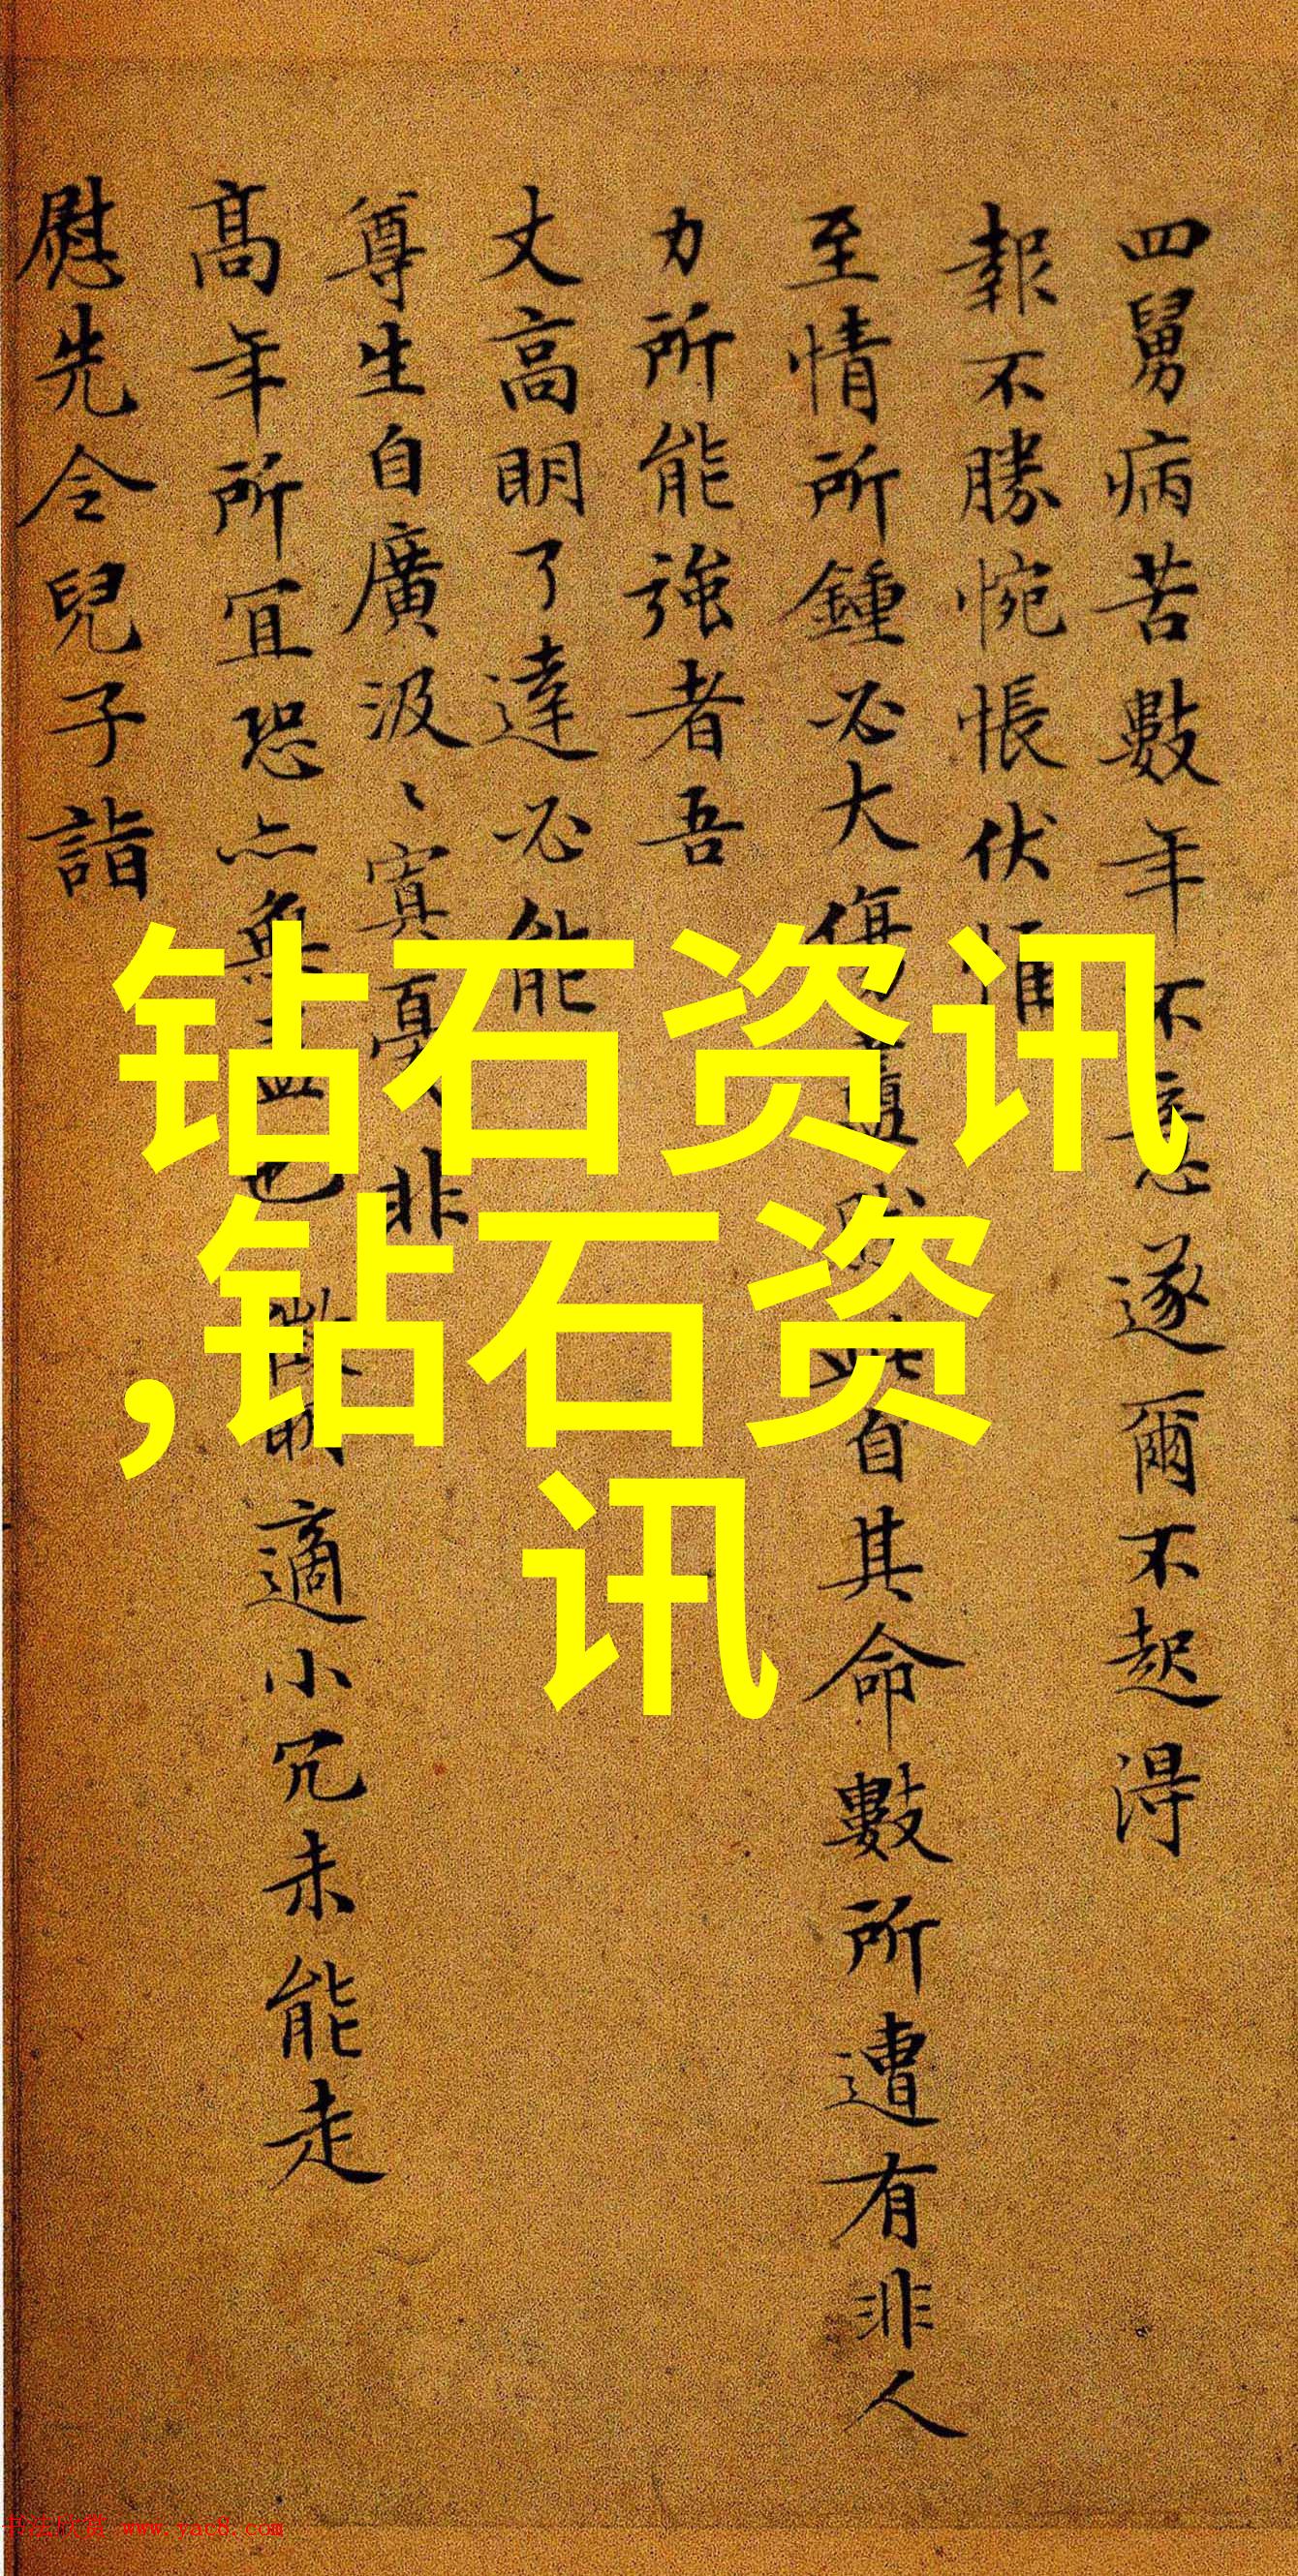 四舅病苦數年不意遂爾不起得
報不勝惋悵伏惟
至情所鍾必大傷自其命數所遭有非人
力所能強者吾
丈高明了達必能
尊生自廣汲〻寘非
高年所宜恐亦無益也適小冗未能走
慰先令兒子詣
钻石资讯
,钻石资
讯
书法欣赏 www.yac8.com